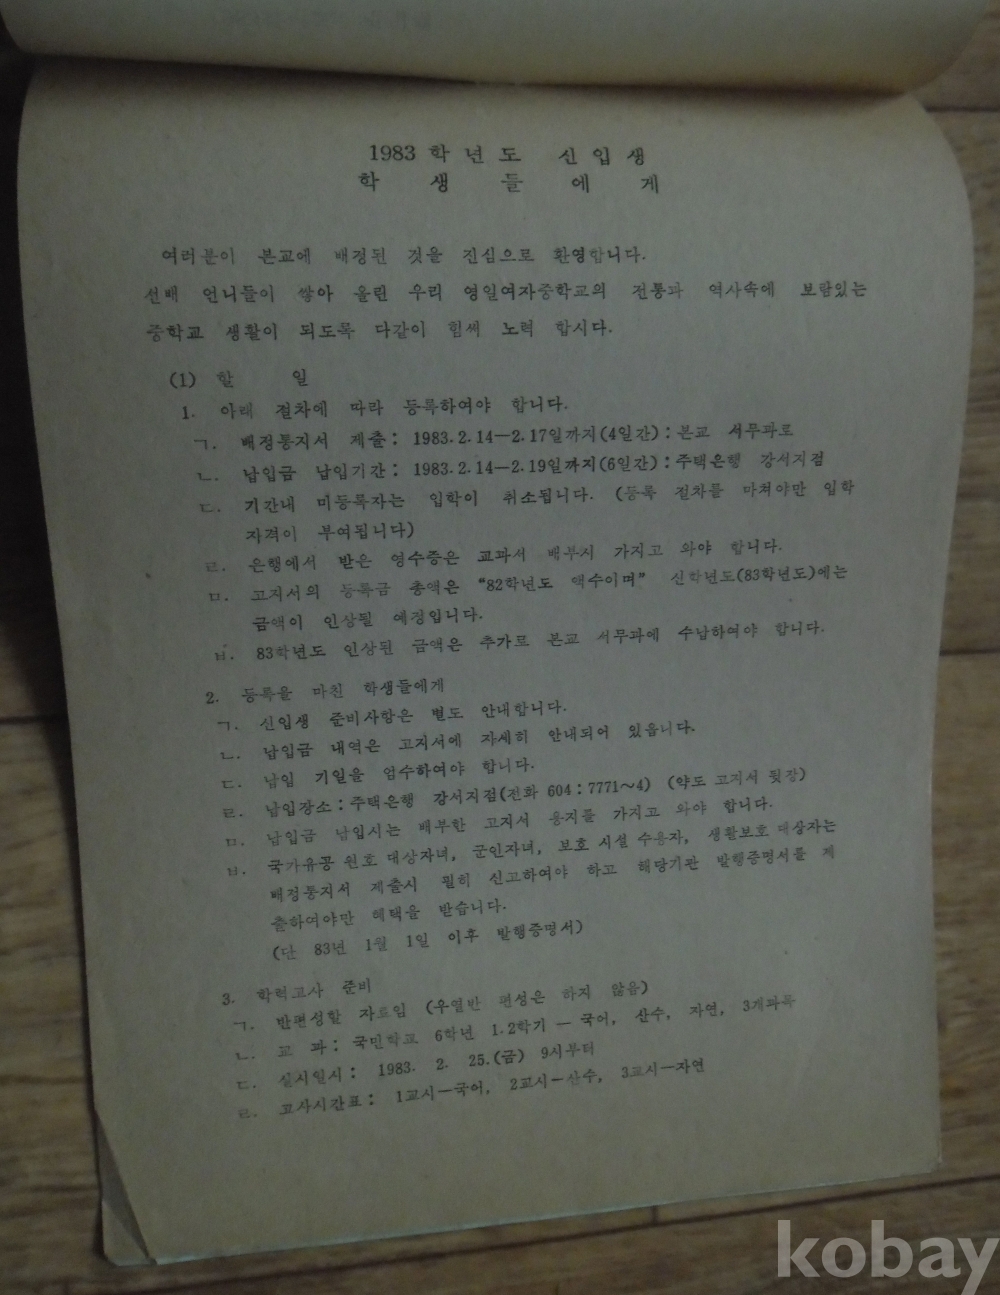 1983 학 년 도 신 입 생
학 생 들 에 게
여러분이 본교에 배정된 것을 진심으로 환영합니다.
선배 언니들이 쌓아 올린 우리 영일여자중학교의 전통과 역사속에 보람있는
중학교 생활이 되도록 다같이 힘써 노력 합시다.
(1) 할 일
1. 아래 절차에 따라 등록하여야 합니다.
ㄱ. 배정통지서 제출: 1983.2.14—2.17일까지(4일간):본교 서무과로
ㄴ. 납입금 납입기간: 1983.2.14—2.19일까지(6일간):주택은행 강서지점
ㄷ. 기간내 미등록자는 입학이 취소됩니다. (등록 절차를 마쳐야만 입학
자격이 부여됩니다)
ㄹ. 은행에서 받은 영수증은 교과서 배부시 가지고 와야 합니다.
ㅁ. 고지서의 등록금 총액은 “82학년도 액수이며” 신학년도(83학년도)에는
금액이 인상될 예정입니다.
ㅂ. 83학년도 인상된 금액은 추가로 본교 서무과에 수납하여야 합니다.
2. 등록을 마친 학생들에게
ㄱ. 신입생 준비사항은 별도 안내합니다.
ㄴ. 납입금 내역은 고지서에 자세히 안내되어 있읍니다.
ㄷ. 납입 기일을 엄수하여야 합니다.
ㄹ. 납입장소:주택은행 강서지점(전화 604:7771~4) (약도 고지서 뒷장)
ㅁ. 납입금 납입시는 배부한 고지서 용지를 가지고 와야 합니다.
ㅂ. 국가유공 원호 대상자녀, 군인자녀, 보호 시설 수용자, 생활보호 대상자는
배정통지서 제출시 필히 신고하여야 하고 해당기관 발행증명서를 제
출하여야만 혜택을 받습니다.
(단 83년 1월 1일 이후 발행증명서)
3. 학력고사 준비
ㄱ. 반편성할 자료임 (우열반 편성은 하지 않음)
ㄴ. 교 과: 국민학교 6학년 1.2학기 — 국어, 산수, 자연, 3개과목
ㄷ. 실시일시: 1983. 2. 25.(금) 9시부터
ㄹ. 고사시간표: 1교시—국어, 2교시—산수, 3교시—자연
kobay